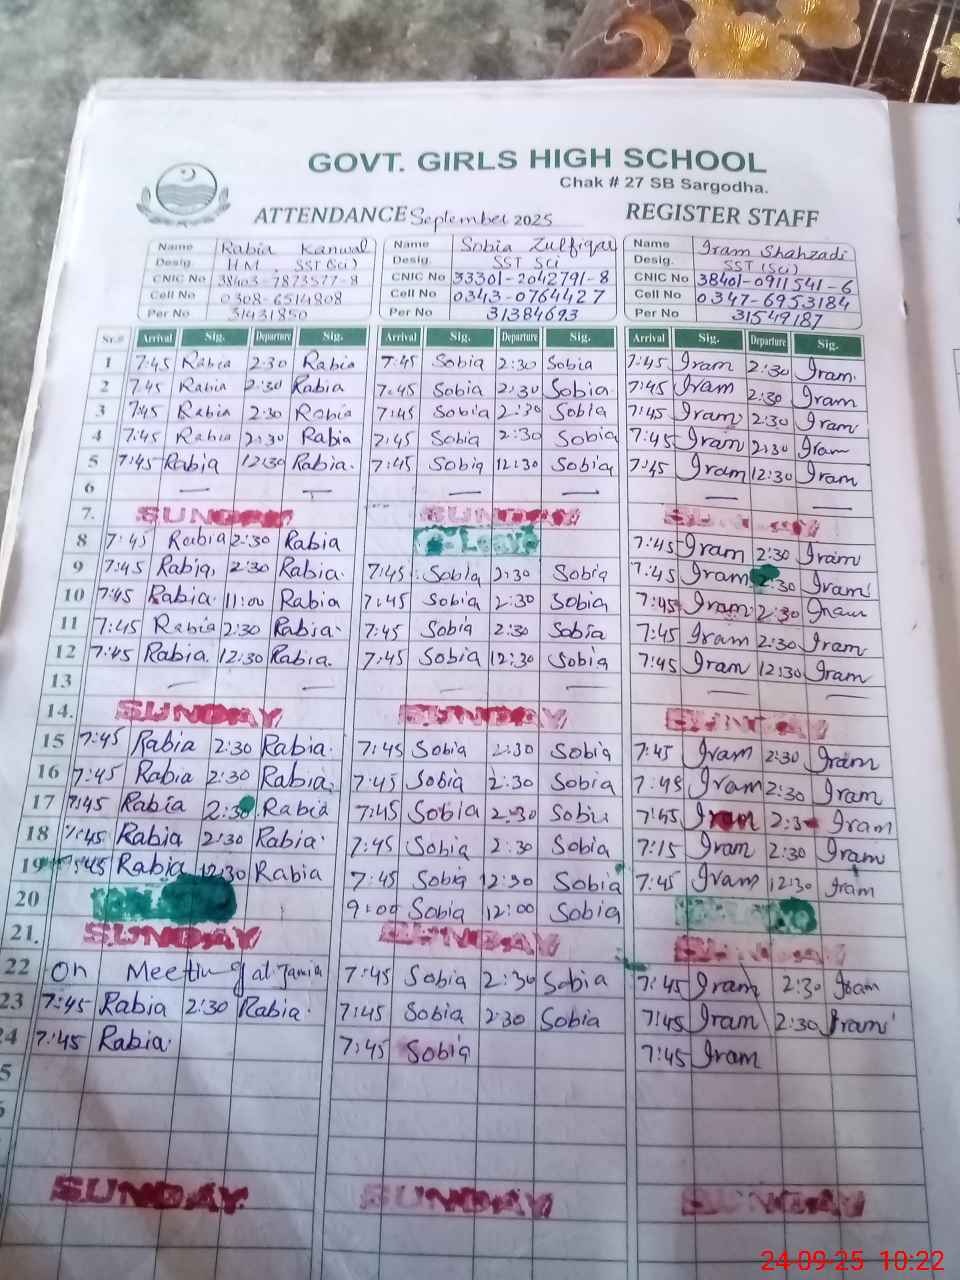 GOVT. GIRLS HIGH SCHOOL
Chak # 27 SB Sargodha.
ATTENDANCE September 2025 REGISTER STAFF
Name Rabia Kanwal Name Sobia Zulfiqar Name Iram Shahzadi
Desig. HM, SST (Sci) Desig. SST Sci Desig. SST (Sci)
CNIC No 38403-7873577-8 CNIC No 33301-2042791-8 CNIC No 38401-0911541-6
Cell No 0308-6514808 Cell No 0343-0764427 Cell No 0347-6953184
Per No 31431850 Per No 31384693 Per No 31549187
Sr.# Arrival Sig. Departure Sig. Arrival Sig. Departure Sig. Arrival Sig. Departure Sig.
1 7:45 Rabia 2:30 Rabia 7:45 Sobia 2:30 Sobia 7:45 Iram 2:30 Iram.
2 7:45 Rabia 2:30 Rabia 7:45 Sobia 2:30 Sobia. 7:45 Iram 2:30 Iram
3 7:45 Rabia 2:30 Rabia 7:45 Sobia 2:30 Sobia 7:45 Iram 2:30 Iram
4 7:45 Rabia 2:30 Rabia 7:45 Sobia 2:30 Sobia 7:45 Iram 2:30 Iram
5 7:45 Rabia 12:30 Rabia. 7:45 Sobia 12:30 Sobia 7:45 Iram 12:30 Iram
6 — — — — — —
7. SUNDAY SUNDAY SUNDAY
8 7:45 Rabia 2:30 Rabia Leave 7:45 Iram 2:30 Iram
9 7:45 Rabia, 2:30 Rabia. 7:45 Sobia 2:30 Sobia 7:45 Iram 2:30 Iram
10 7:45 Rabia. 11:00 Rabia 7:45 Sobia 2:30 Sobia 7:45 Iram 2:30 Iram
11 7:45 Rabia 2:30 Rabia. 7:45 Sobia 2:30 Sobia 7:45 Iram 2:30 Iram
12 7:45 Rabia. 12:30 Rabia. 7:45 Sobia 12:30 Sobia 7:45 Iram 12:30 Iram
13 — — — — — —
14. SUNDAY SUNDAY SUNDAY
15 7:45 Rabia 2:30 Rabia. 7:45 Sobia 2:30 Sobia 7:45 Iram 2:30 Iram
16 7:45 Rabia 2:30 Rabia. 7:45 Sobia 2:30 Sobia 7:45 Iram 2:30 Iram
17 7:45 Rabia 2:30 Rabia 7:45 Sobia 2:30 Sobia 7:45 Iram 2:3 Iram
18 7:45 Rabia 2:30 Rabia. 7:45 Sobia 2:30 Sobia 7:15 Iram 2:30 Iram
19 7:45 Rabia 12:30 Rabia 7:45 Sobia 12:30 Sobia 7:45 Iram 12:30 Iram
20 9:00 Sobia 12:00 Sobia
21. SUNDAY SUNDAY SUNDAY
22 On Meeting at Jamia 7:45 Sobia 2:30 Sobia 7:45 Iram 2:30 Iram
23 7:45 Rabia 2:30 Rabia. 7:45 Sobia 2:30 Sobia 7:45 Iram 2:30 Iram
24 7:45 Rabia. 7:45 Sobia 7:45 Iram
5
SUNDAY SUNDAY SUNDAY
24-09-25 10:22